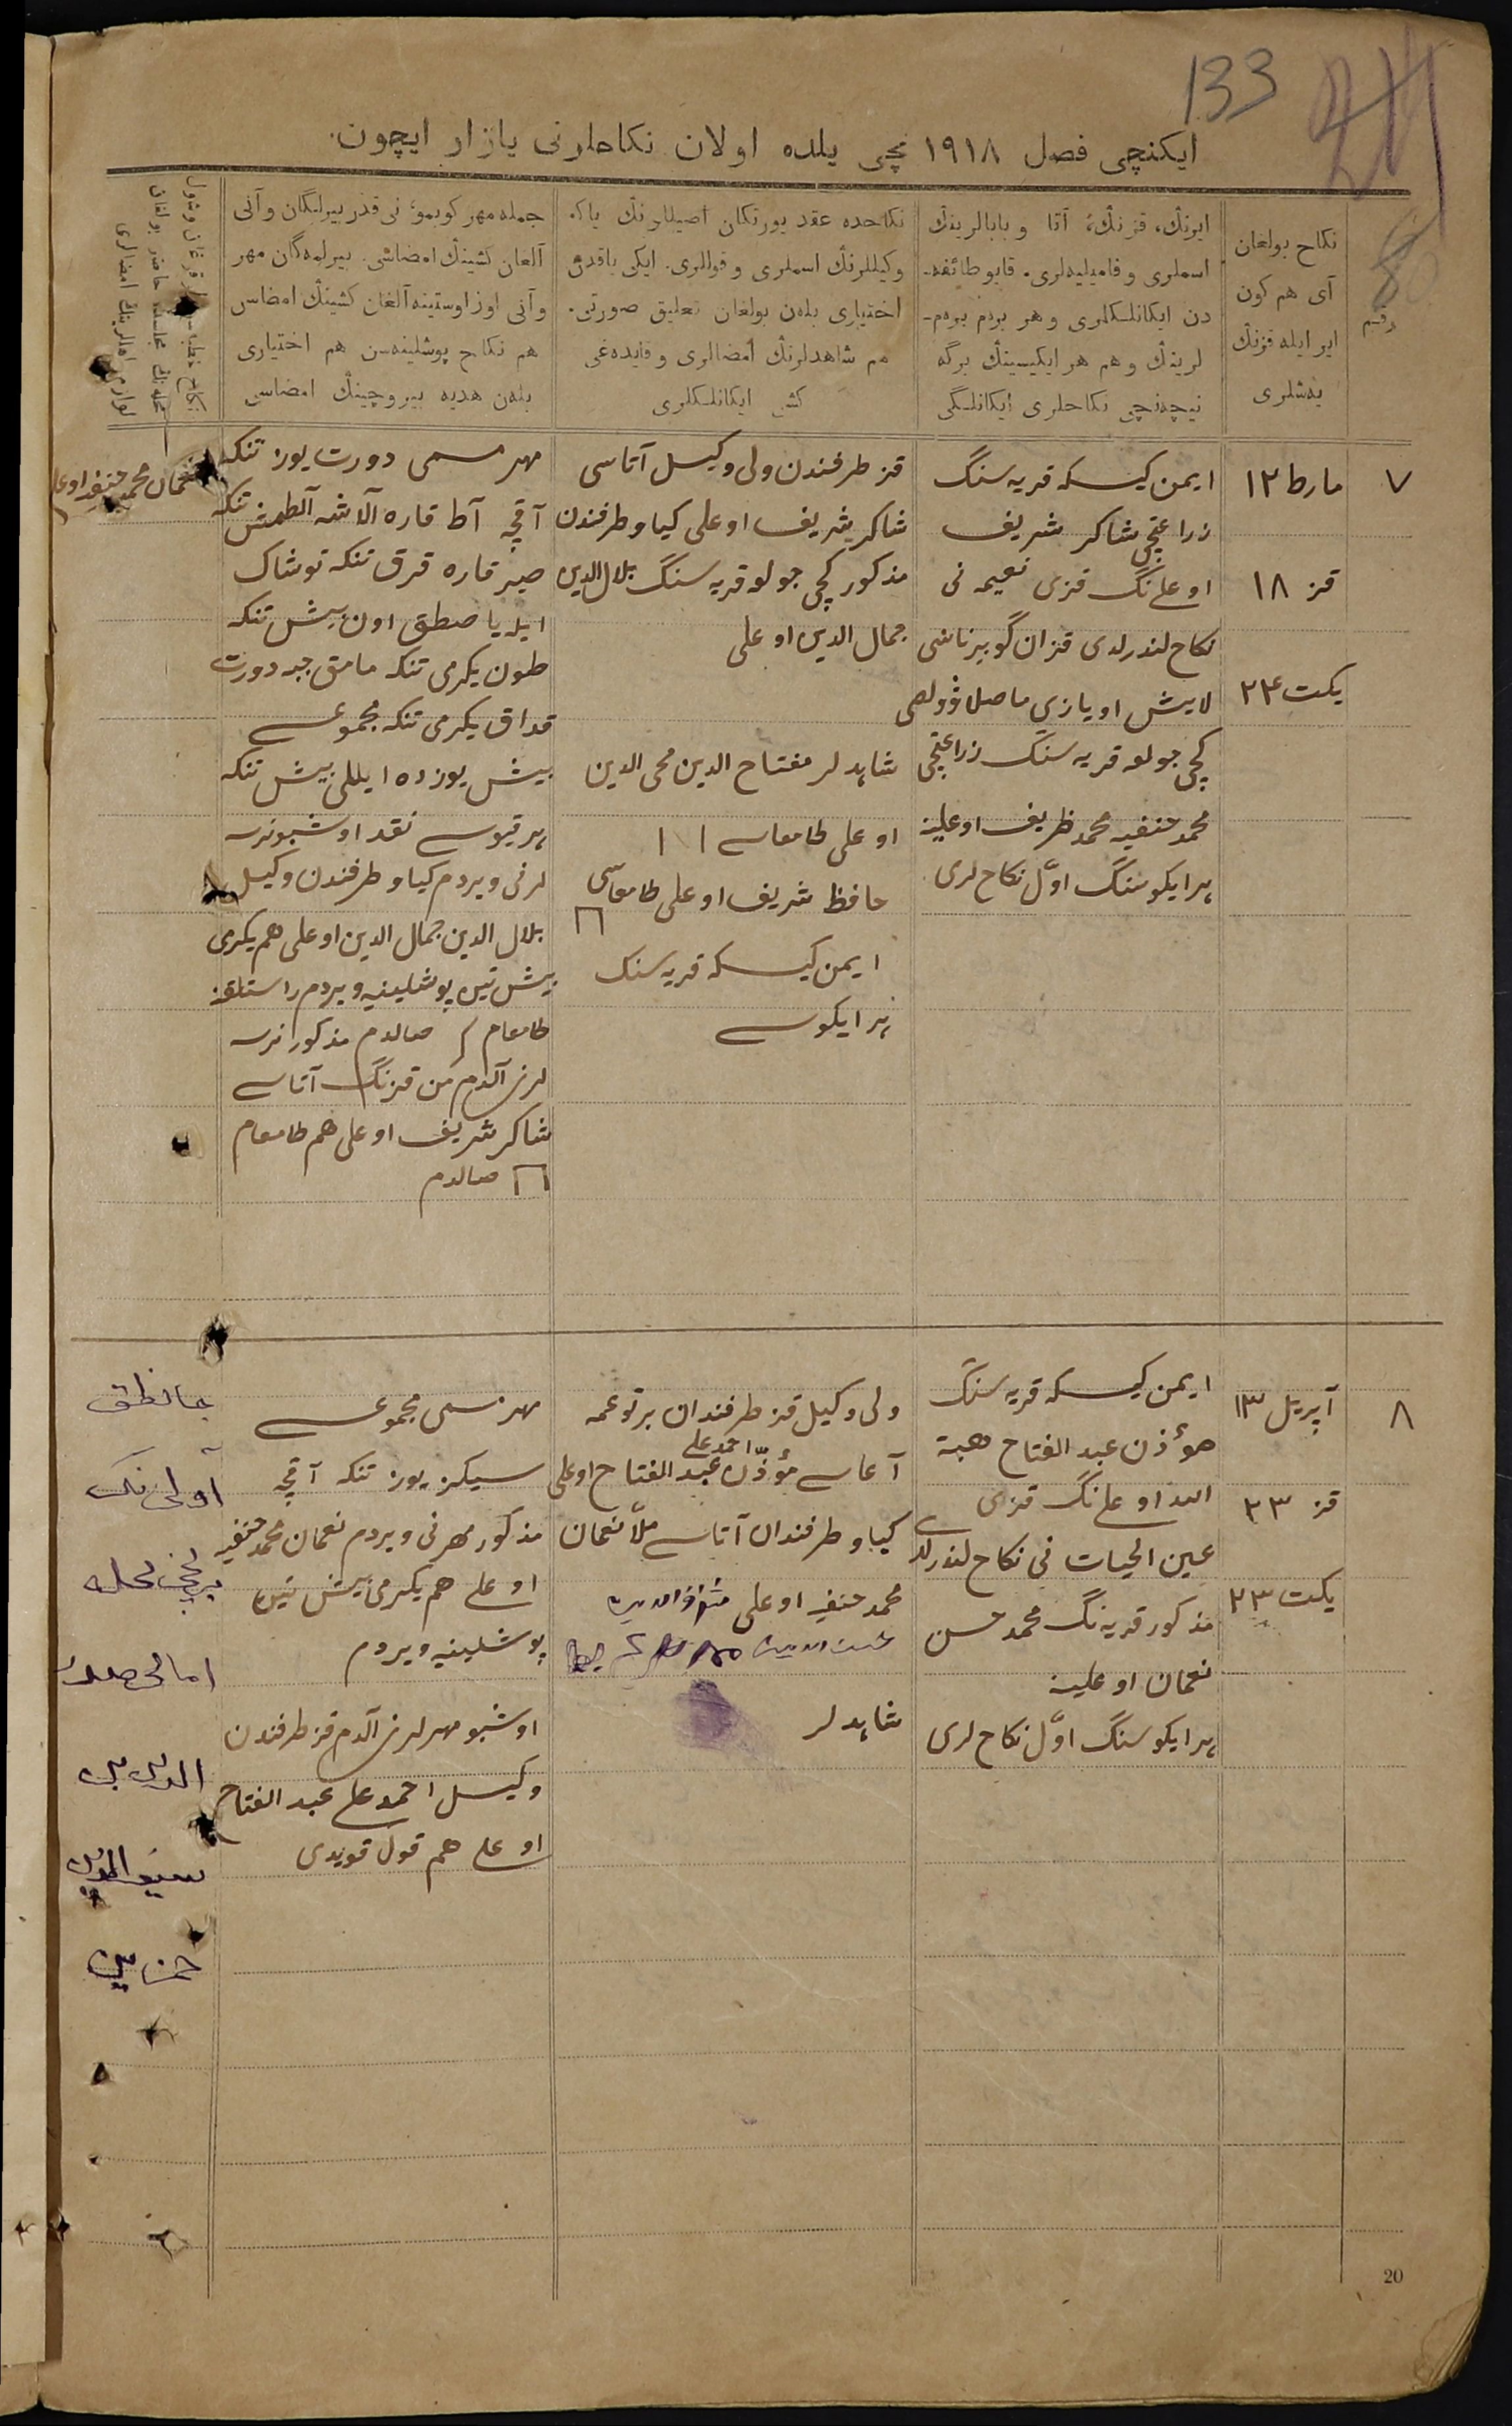 133
ایکنچی فصل ١٩١٨ نچی یلده اولان نکاحلرنی یازار ایچون.
رقم
نکاح بولغان
آی هم کون
ایر ایله قزنڭ
یەشلری
ایرنڭ، قزنڭ، آتا و بابالرینڭ
اسملری و فامیلیەلری. قایو طائفه‌-
دن ایکانلکلری و هر بردم بردم-
لرینڭ و هم هر ایکیسینڭ برگه
نیچه‌نچی نکاحلری ایکانلگی
نکاحده عقد یورتکان اصیللرنڭ یاکه
وکیللرنڭ اسملری و قوللری. ایکی یاقدڭ
اختیاری بله‌ن بولغان تعلیق صورتی.
هم شاهدلرنڭ أمضالری و قایده‌غی
کشی ایکانلکلری
جمله مهر کوبمو، نی قدر بیرلگان و آنی
آلغان کشینڭ امضاشی. بیرلمه‌گان مهر
و آنی اوز اوستینه آلغان کشینڭ امضاسی
هم نکاح پوشلینه‌سن هم اختیاری
بله‌ن هدیه بیروچینڭ امضاسی
٧
مارط ١٢
قز ١٨
یکت ٢٤
ایمن کیسکه قریه سنگ
زراعتچی شاکر شریف
اوغلی نگ قزی نعیمه نی
نکاح لندرلدی قزان گوبیرناسی
لایش اویازی ماصلاوولصی
کچی جولو قریه سنگ زراعتچی
محمد حنفیه محمد ظریف اوغلینه
هر ایکوسنگ اوّل نکاح لری
قز طرفندن ولی وکیل آتاسی
شاکر شریف اوغلی کیاو طرفندن
مذکور کچی جولو قریه سنگ بلال الدین
جمال الدین اوغلی
شاهدلر مفتاح الدین محی الدین
اوغلی طامغاسی
حافظ شریف اوغلی طامغاسی
ایمن کیسکه قریه سنگ
هر ایکوسی
مهر مسمی دورت یوز تنکه
آقچه آط قاره آلاشه آلطمش تنکه
صیر قاره قرق تنکه توشاک
ایله یاصطق اون بیش تنکه
طون یکرمی تنکه مامق جبه دورت
قداق یکرمی تنکه مجموعی
بیش یوز ده ایللی بیش تنکه
هر قیوسی نقد اوشبو نرسه
لرنی ویردم کیاو طرفندن وکیل
بلال الدین جمال الدین اوغلی هم یکرمی
بیش تین پوشلینه ویردم راستلقغه
طامغام صالدم مذکور نرسه
لرنی آلدم من قزنگ آتاسی
شاکر شریف اوغلی هم طامغام
صالدم
نعمان محمد حنفیه اوغلی
٨
آپریل ١٣
قز ٢٣
یکت ٢٣
ایمن کیسکه قریه سنگ
مؤذن عبد الفتاح هبة
الله اوغلی نگ قزی
عین الحیات نی نکاح لندرلدی
مذکور قریه نگ محمد حسن
نعمان اوغلینه
هر ایکوسنگ اوّل نکاح لری
ولی وکیل قز طرفندان برتوغمه
آغاسی مؤذّن احمد علی عبد الفتاح اوغلی
کیاو طرفندان آتاسی ملّا نعمان
محمد حنفیه اوغلی
شاهدلر
مهر مسمی مجموعی
سیکز یوز تنکه آقچه
مذکور مهرنی ویردم نعمان محمد حنفیه
اوغلی هم یکرمی بیش تین
پوشلینه ویردم
اوشبو مهرلرنی آلدم قز طرفندن
وکیل احمد علی عبد الفتاح
اوغلی هم قول قویدی
آولی نک
برنجی محله
20